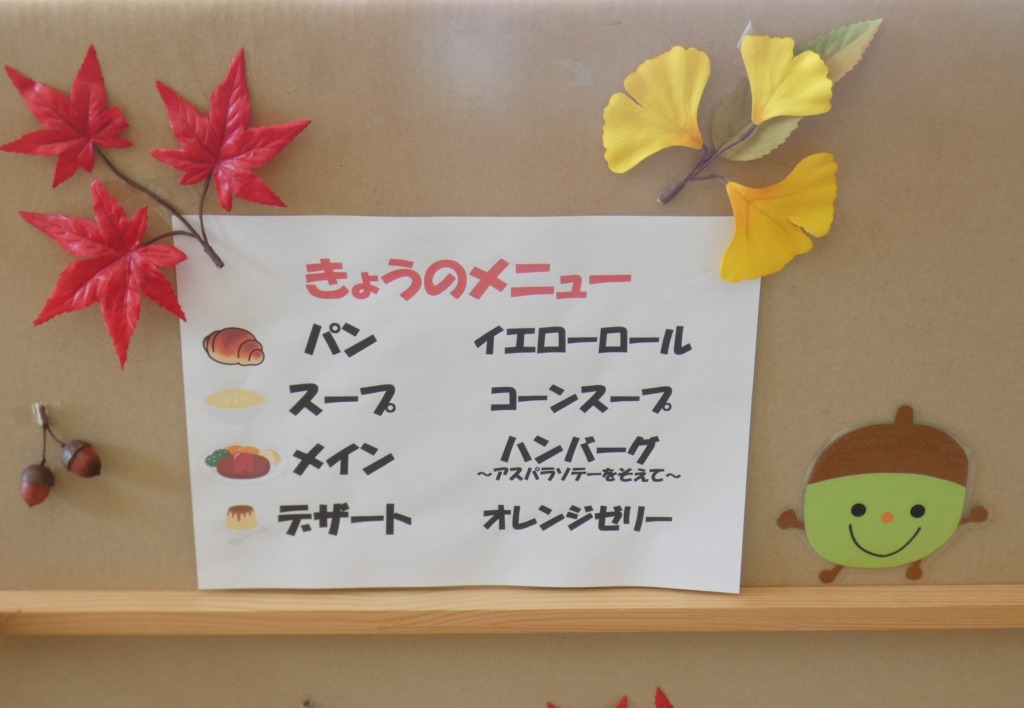 きょうのメニュー
パン イエローロール
スープ コーンスープ
メイン ハンバーグ
～アスパラソテーをそえて～
デザート オレンジゼリー